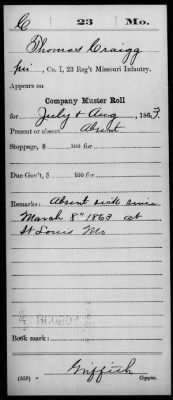 C 23 Mo.
Thomas Craigg
Pri, Co. I, 23 Reg't Missouri Infantry.
Appears on
Company Muster Roll
for July & Aug, 1863.
Present or absent Absent
Stoppage, $ 100 for
Due Gov't, $ 100 for
Remarks: Absent sick since
March 8" 1863 at
St Louis Mo
Book mark:
Griffith
(858) Copyist.